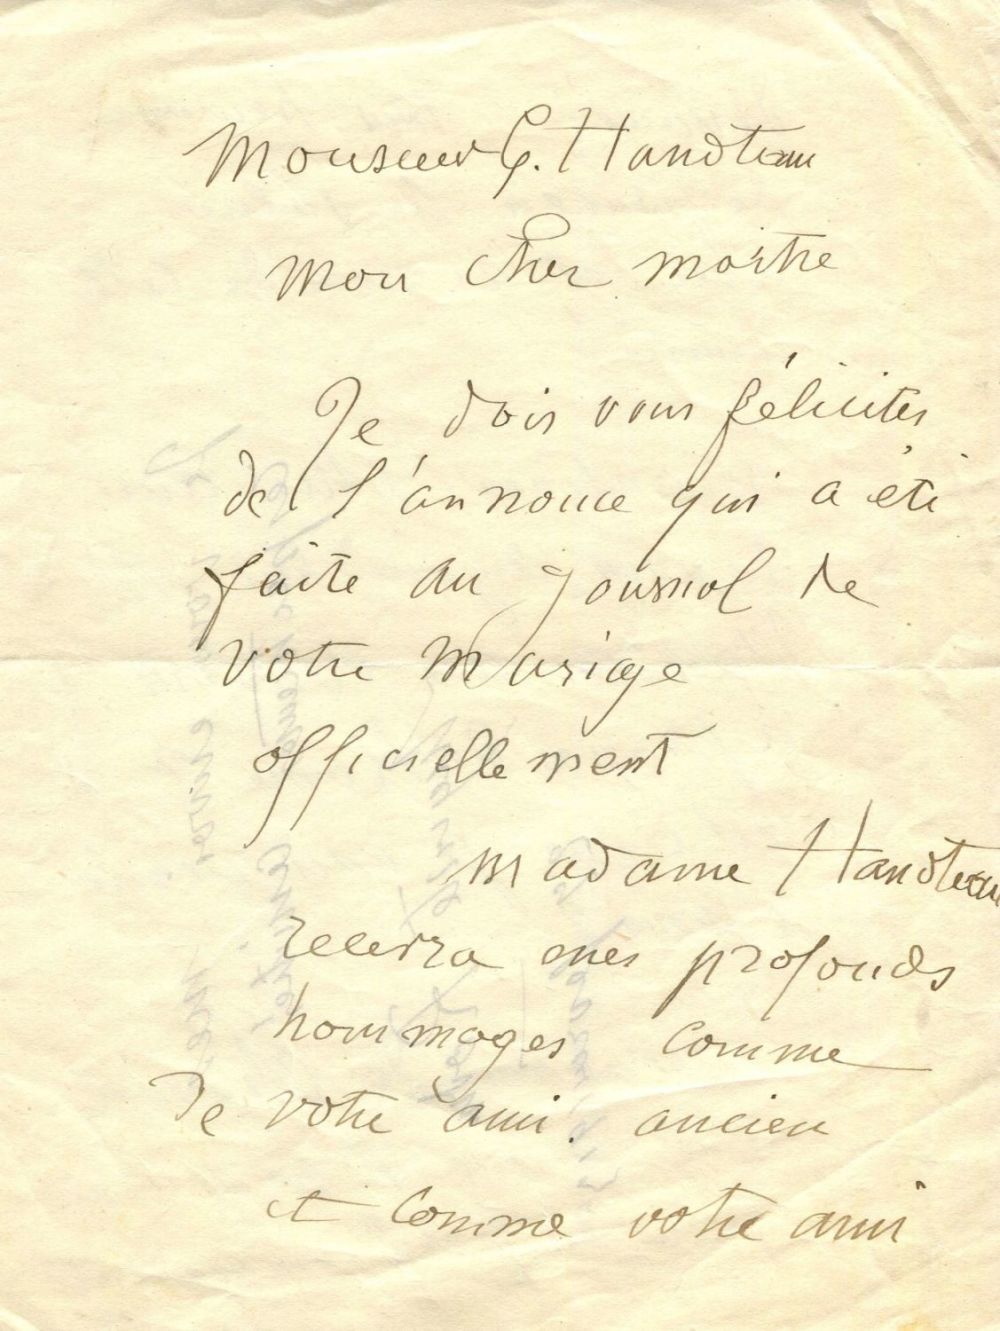 Monsieur G. Handteau
mon cher maitre
Je dois vous féliciter
de l'annonce qui a été
faite au journal de
votre mariage
officiellement
madame Handteau
recevra mes profonds
hommages comme
de votre ami. ancien
et comme votre ami